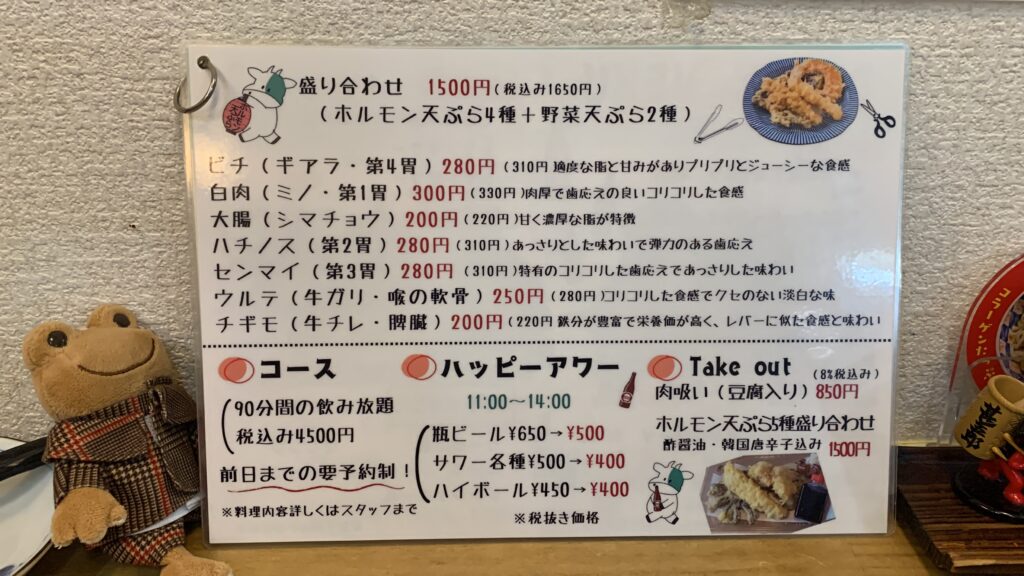 盛り合わせ 1500円(税込み1650円)
(ホルモン天ぷら4種+野菜天ぷら2種)
ホルモン天ぷら
ビチ(ギアラ・第4胃)280円(310円 適度な脂と甘みがありプリプリとジューシーな食感
白肉(ミノ・第1胃)300円(330円)肉厚で歯応えの良いコリコリした食感
大腸(シマチョウ)200円(220円)甘く濃厚な脂が特徴
ハチノス(第2胃)280円(310円)あっさりとした味わいで弾力のある歯応え
センマイ(第3胃)280円(310円)特有のコリコリした歯応えであっさりした味わい
ウルテ(牛ガリ・喉の軟骨)250円(280円)コリコリした食感でクセのない淡白な味
チギモ(牛チレ・脾臓)200円(220円 鉄分が豊富で栄養価が高く、レバーに似た食感と味わい
コース
90分間の飲み放題
税込み4500円
前日までの要予約制!
※料理内容詳しくはスタッフまで
ハッピーアワー
11:00~14:00
瓶ビール¥650→¥500
サワー各種¥500→¥400
ハイボール¥450→¥400
※税抜き価格
Take out (8%税込み)
肉吸い(豆腐入り)850円
ホルモン天ぷら5種盛り合わせ
酢醤油・韓国唐辛子込み 1500円
コラーゲンたっぷ